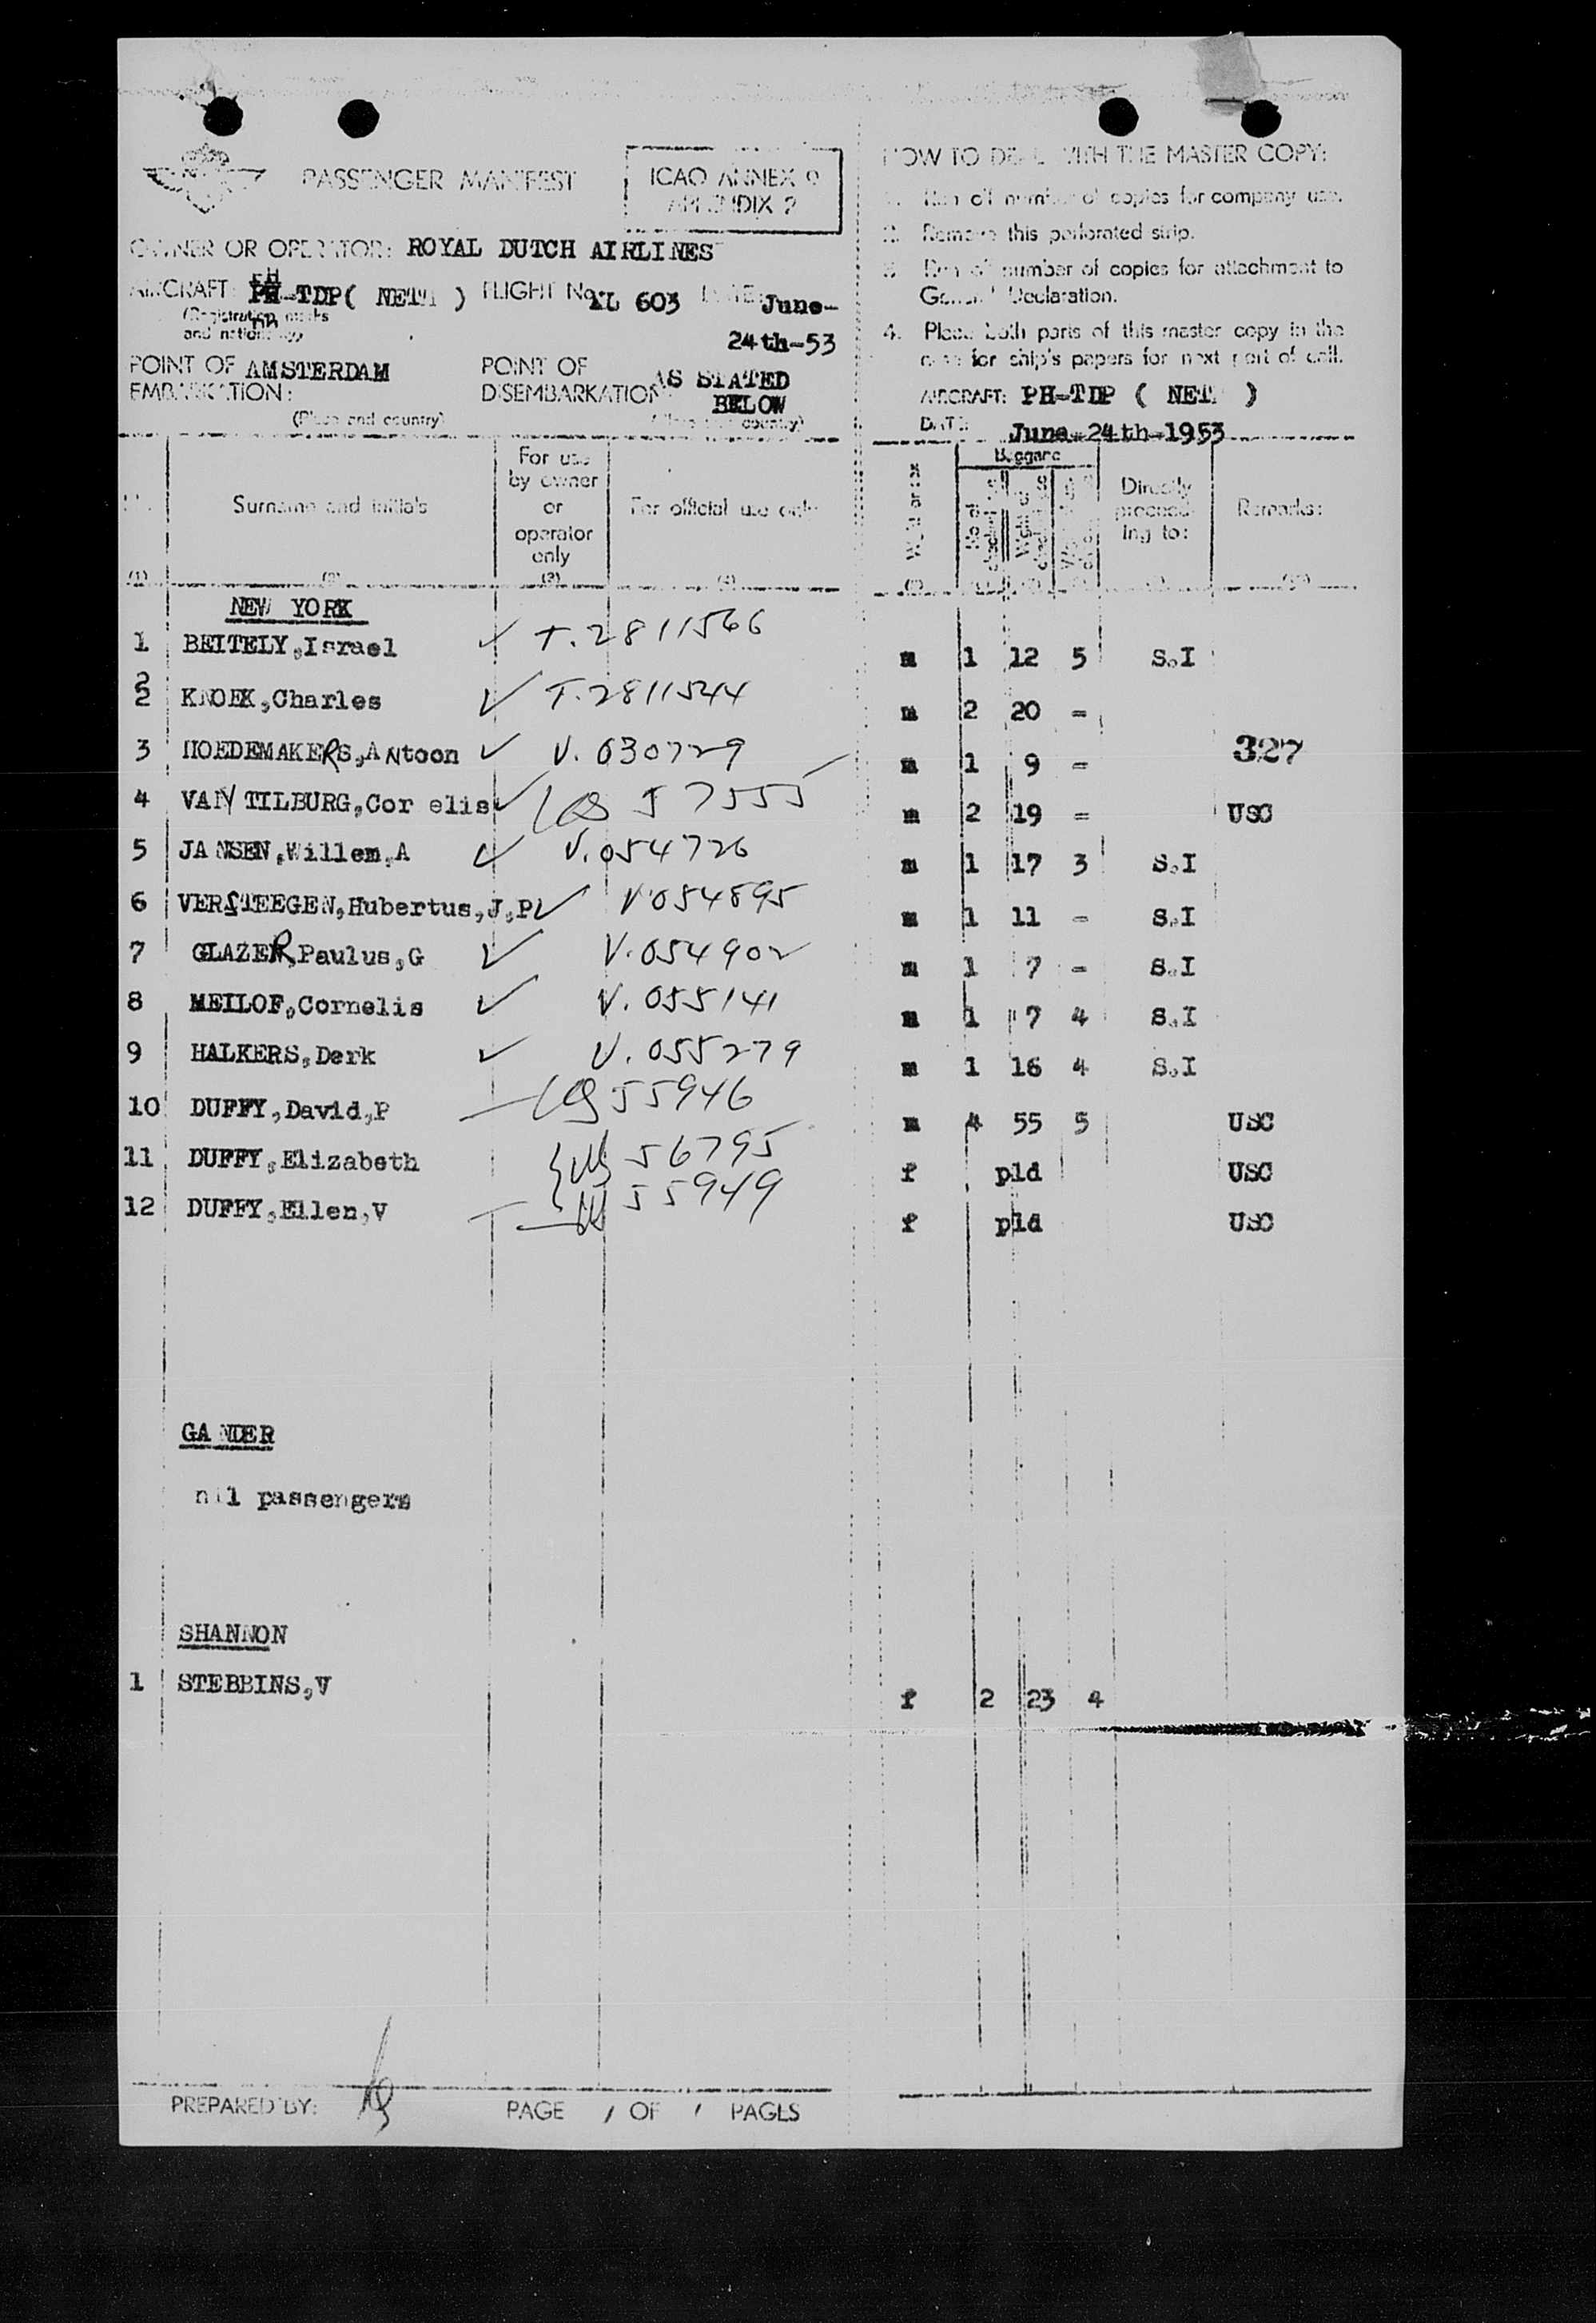 PASSENGER MANIFEST
ICAO ANNEX 9
APPENDIX 2
OWNER OR OPERATOR: ROYAL DUTCH AIRLINES
AIRCRAFT: PH-TDP ( NETH ) FLIGHT No. KL 603 DATE: June-
(Registration marks
and nationality)
24th-53
POINT OF AMSTERDAM
EMBARKATION:
(Place and country)
POINT OF AS STATED
DISEMBARKATION BELOW
(Place and country)
Surname and initials
For use
by owner
or
operator
only
For official use only
(1) (2) (3) (4)
NEW YORK
1 BEITELY,Israel ✓ T.2811566
2 KNOEK,Charles ✓ T.2811544
3 HOEDEMAKERS,ANtoon ✓ V.030729
4 VAN TILBURG,Cor elis ✓ 57555
5 JANSEN,Willem,A ✓ V.054726
6 VERSTEEGEN,Hubertus,J,P ✓ V054895
7 GLAZER,Paulus,G ✓ V.054902
8 MEILOF,Cornelis ✓ V.055141
9 HALKERS,Derk ✓ V.055279
10 DUFFY,David,P 55946
11 DUFFY,Elizabeth 56795
12 DUFFY,Ellen,V 55949
GANDER
nil passengers
SHANNON
1 STEBBINS,V
PREPARED BY:
PAGE 1 OF 1 PAGES
HOW TO DEAL WITH THE MASTER COPY:
1. Run off number of copies for company use.
2. Remove this perforated strip.
3. Run off number of copies for attachment to
General Declaration.
4. Place both parts of this master copy in the
case for ship's papers for next port of call.
AIRCRAFT: PH-TDP ( NET )
DATE: June-24th-1953
Baggage
Directly
proceed-
ing to:
Remarks:
m 1 12 5 S.I
m 2 20 =
m 1 9 = 327
m 2 19 = USC
m 1 17 3 S.I
m 1 11 = S.I
m 1 7 = S.I
m 1 7 4 S.I
m 1 16 4 S.I
m 4 55 5 USC
f pld USC
f pld USC
f 2 23 4